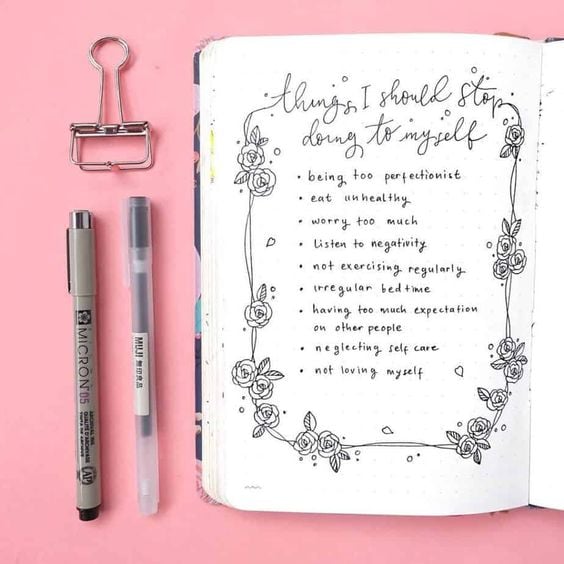 things I should stop
doing to myself
• being too perfectionist
• eat unhealthy
• worry too much
• Listen to negativity
• not exercising regularly
• irregular bedtime
• having too much expectation
on other people
• neglecting self care
• not loving myself
MICRON 05
ARCHIVAL INK
AP
MUJI 無印良品